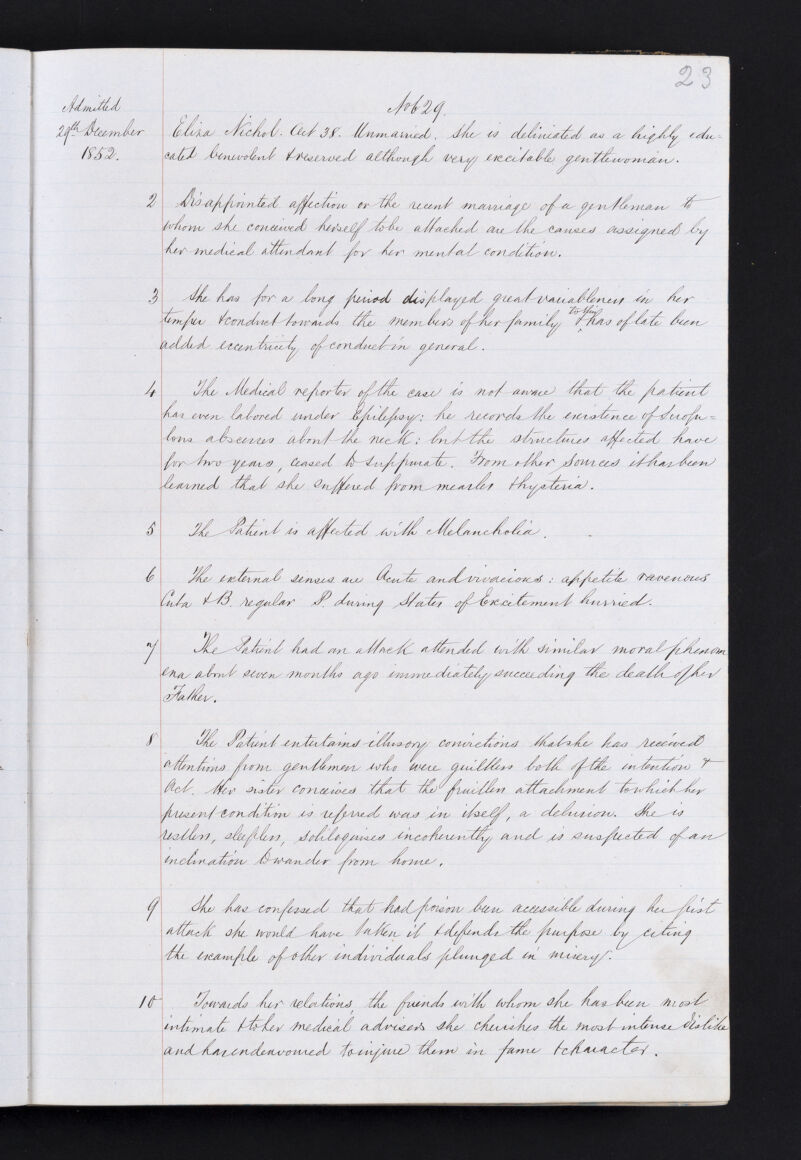 23
Admitted
29th December
1852.
No 629.
Eliza Nichol. Aet 38. Unmarried. She is delineated as a highly edu=
cated benevolent & reserved although very excitable gentlewoman.
2 Disappointed affection or the recent marriage of a gentleman to
whom she conceived herself to be attached are the causes assigned by
her medical attendant for her mental condition.
3 She has for a long period displayed great variableness in her
temper & conduct towards the members of her family & to this has of late been
added eccentricity of conduct in general.
4 The Medical reporter of the case is not aware that the patient
has even labored under Epilepsy: he records the existence of Scrofu=
lous abscesses about the neck: but the structures affected have
for two years, ceased to suppurate. From other sources it has been
learned that she suffered from measles & hysteria.
5 The Patient is affected with Melancholia.
6 The external senses are Acute and vivacious: appetite ravenous
Cuta & B. regular P. during States of Excitement hurried.
7 The Patient had an attack attended with similar moral phenom
ena about seven months ago immediately succeeding the death of her
Father.
8 The Patient entertains illusory convictions that she has received
attentions from gentlemen who were guiltless both of the intention &
Act. Her sister conceives that the fruitless attachment to which her
present condition is referred was in itself, a delusion. She is
restless, sleepless, soliloquises incoherently and is suspected of an
inclination to wander from home.
9 She has confessed that had poison been accessible during her first
attack she would have taken it & defends the purpose by citing
the example of other individuals plunged in misery.
10 Towards her relations, the friends with whom she has been most
intimate & to her medical advisers she cherishes the most intense dislike
and has endeavoured to injure them in fame & character.